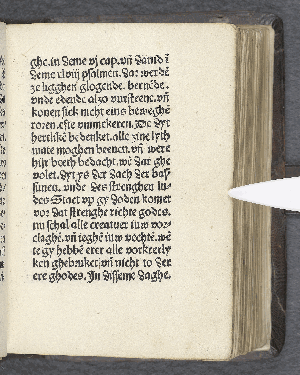 ghe. in deme vj cap. vñ dauid ī
deme xlviij psalmen. dar werdē
ze ligghen glogende. bernēde.
vnde edende alzo vursteene. vñ
konen siek nicht eins beweghē
roren. efte vmmekeren. We dyt
hertlikē bedenket. alle zine lyth
mate moghen beeuen. vñ were
hijr hoeth bedacht. wē dar ghe
volet. dyt ys der dach der baſ
sunen. vnde des strenghen lu-
des Staet vp gy doden komet
vor dat strenghe richte godes.
nu schal alle creatuer iuw vor-
claghē. vñ teghē iuw vechtē. wē
te gy hebbē erer alle vorkeerly
ken ghebruket vñ nicht to der
ere ghodes. In disseme daghe.